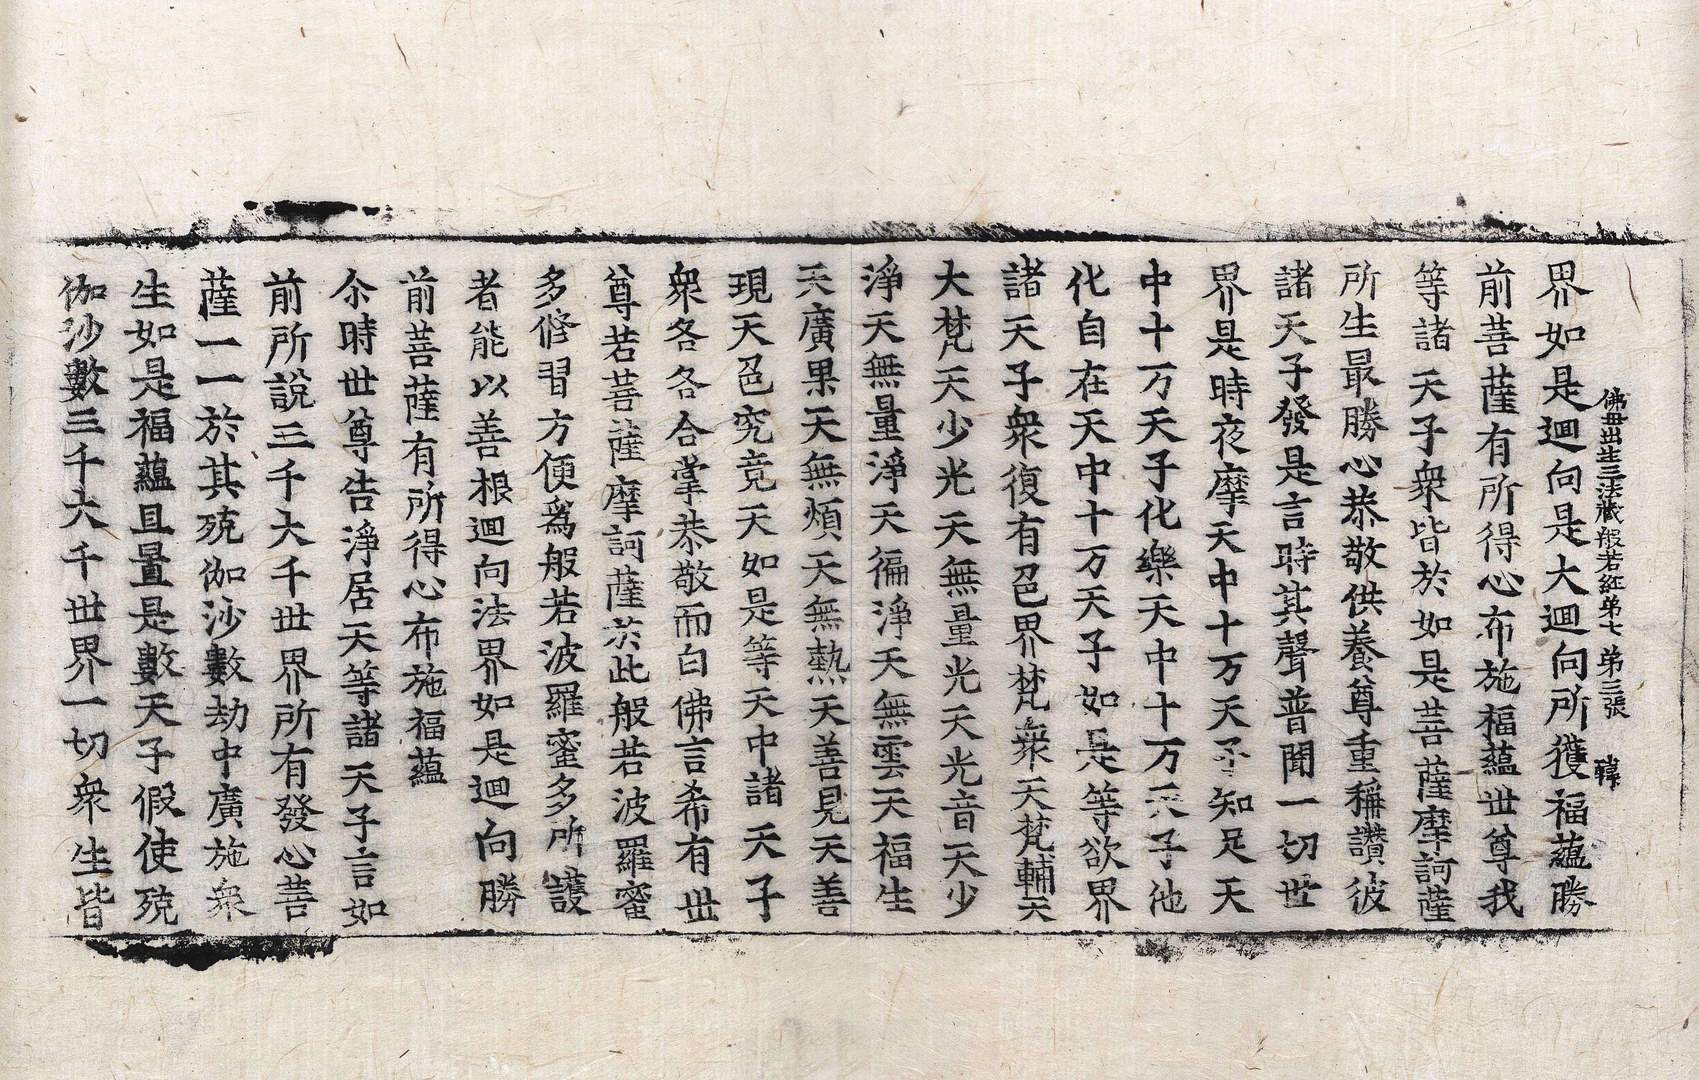 佛母出生三法藏般若経第七 第三張 韓
界如是迴向是大迴向所獲福蘊勝
前菩薩有所得心布施福蘊世尊我
等諸天子衆皆於如是菩薩摩訶薩
所生最勝心恭敬供養尊重稱讃彼
諸天子發是言時其聲普聞一切世
界是時夜摩天中十万天子知足天
中十万天子化樂天中十万天子他
化自在天中十万天子如是等欲界
諸天子衆復有色界梵衆天梵輔天
大梵天少光天無量光天光音天少
淨天無量淨天徧淨天無雲天福生
天廣果天無煩天無熱天善見天善
現天色究竟天如是等天中諸天子
衆各各合掌恭敬而白佛言希有世
尊若菩薩摩訶薩於此般若波羅蜜
多修習方便爲般若波羅蜜多所護
者能以善根迴向法界如是迴向勝
前菩薩有所得心布施福蘊
尒時世尊告淨居天等諸天子言如
前所說三千大千世界所有發心菩
薩一一於其殑伽沙數劫中廣施衆
生如是福蘊且置是數天子假使殑
伽沙數三千大千世界一切衆生皆